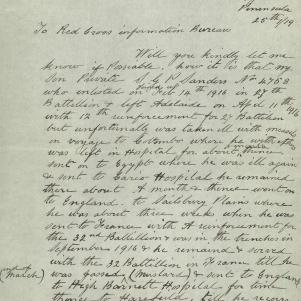 Peninsula
25th /19
To Red Cross information Bureau
Will you kindly let me
know if Possable. how it is that my
Son Private S G R Sanders No 4758
who enlisted on Feb 14th 1916 in 27th
Battelien & left Adelaide on April 11th 1916
with 12th reinforcement for 27 Battelien
but unfortunatly was taken ill with
on voyage to Colombo where he with
was left in Hospital for about
sent on to Egypt where he was ill again
& sent to Cario Hospital he remained
there about A month & then went on
to England. to Salsbury Plains where
he was about three weeks when he was
sent to France with A reinforcement for
the 32nd Battelion was in the trenches in
September 1916 & he remained & served
with the 32 Battelien in France till he
was gassed (mustard) & sent to England
(March)
to High Barnett Hospital for time
thence to Harefield. till he recovered